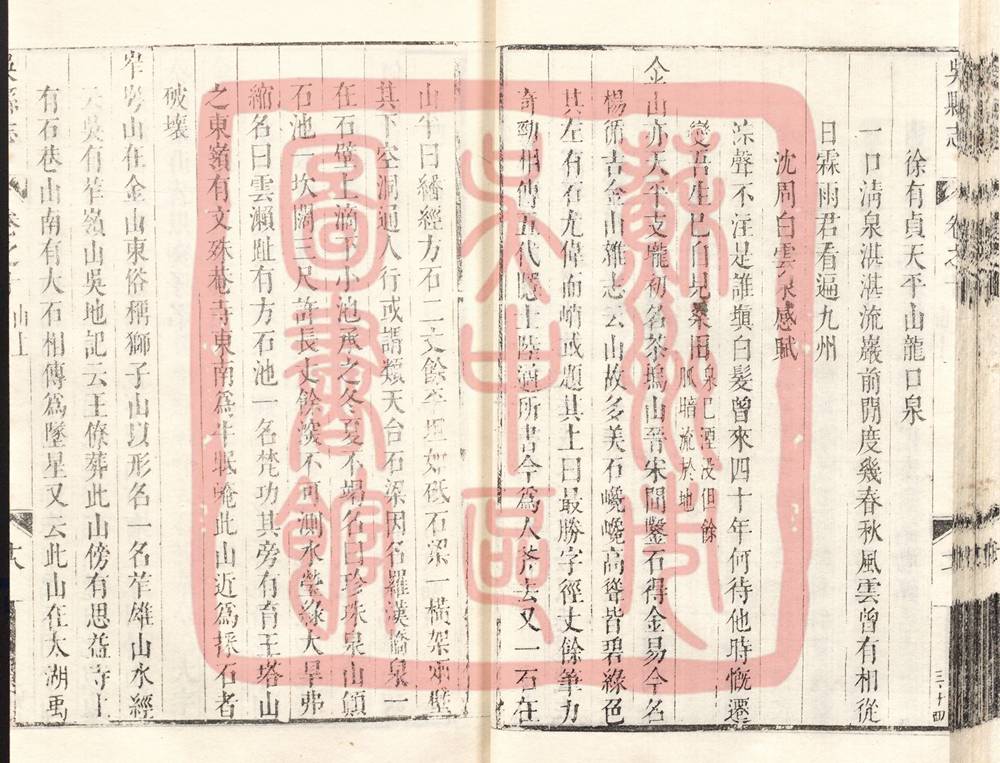 吳縣志
徐有貞天平山龍口泉
一口清泉湛湛流巖前閱度幾春秋風雲曾有相從
日霖雨君看遍九州
沈周白雲泉感賦
淙聲不注是誰塡白髮曾來四十年何待他時慨遷
變吾生已自見桑田泉已湮沒但餘
脈暗流於地
金山亦天平支隴初名茶塢山晉宋間鑿石得金易今名
楊循吉金山雜志云山故多美石巉巉高聳皆碧綠色
其左有石尤偉而峭或題其上曰最勝字徑丈餘筆力
奇勁相傳五代隱士陸遁所書今爲人斧去又一石在
山半曰繙經方石二丈餘平坦如砥石梁一橫架兩壁
其下空洞通人行或謂類天台石梁因名羅漢橋泉一
在石壁上滴下小池承之冬夏不竭名曰珍珠泉山顛
石池一坎闊三尺許長丈餘深不可測水瑩綠大旱弗
縮名曰雲瀨趾有方石池一名梵功其旁有育王塔山
之東嶺有文殊菴寺東南爲牛眠崦此山近爲採石者
破壞
岝㟧山在金山東俗稱獅子山以形名一名岞雄山水經
云吳有岞嶺山吳地記云王僚葬此山傍有思益寺山
有石巷山南有大石相傳爲墜星又云此山在太湖禹
三·十四
蘇州市
吳中區
圖書館